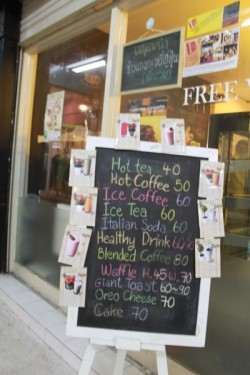 FREE
Hot tea 40
Hot Coffee 50
Ice Coffee 60
Ice Tea 60
Italian Soda 60
Healthy Drink
Blended Coffee 80
Waffle H.45 W.70
Giant Toast 60-90
Oreo Cheese 70
Cake 70